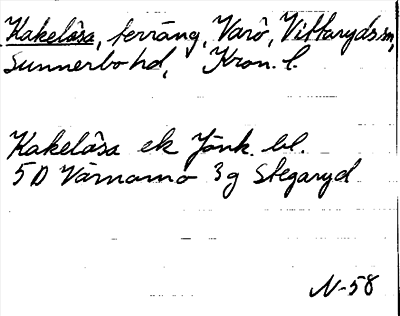 Kakelåsa, terräng, Varö, Vittaryds sn,
Sunnerbo hd, Kron. l.
Kakelåsa ek Jönk. bl.
5D Värnamo 3g Stegaryd
N-58